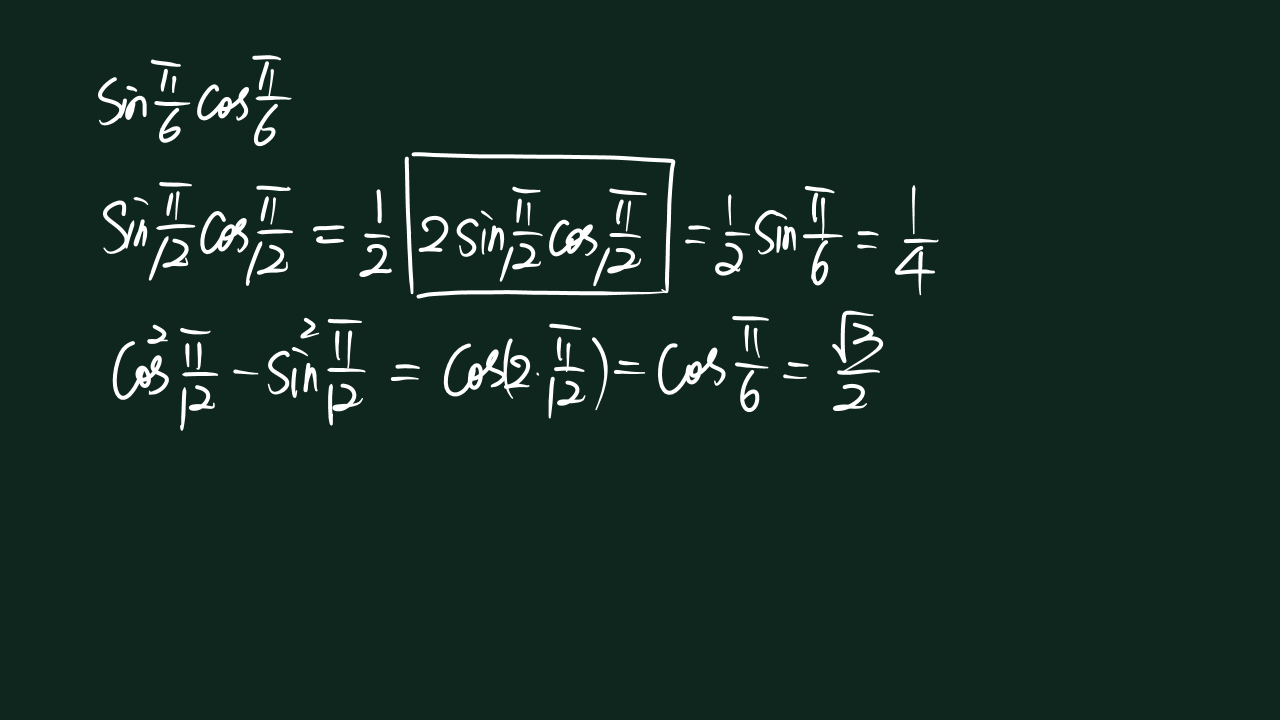 sin π/6 cos π/6
sin π/12 cos π/12 = 1/2 2 sin π/12 cos π/12 = 1/2 sin π/6 = 1/4
cos² π/12 − sin² π/12 = cos(2·π/12) = cos π/6 = √3/2